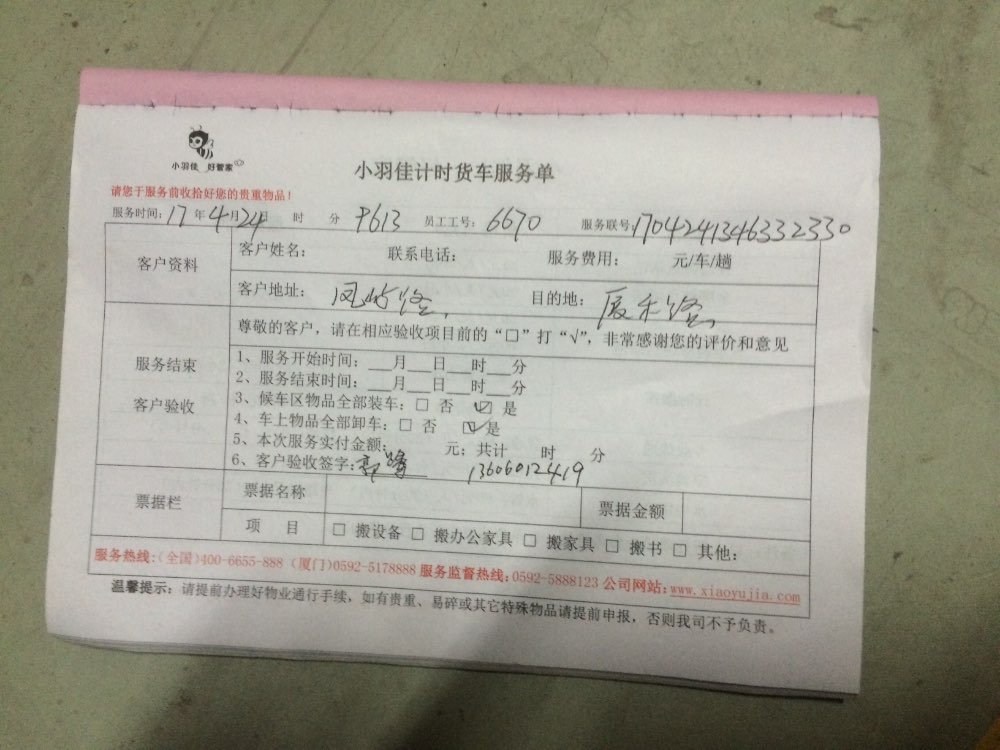 小羽佳 好管家
小羽佳计时货车服务单
请您于服务前收拾好您的贵重物品!
服务时间: 17年4月24日 时 分 9613 员工工号: 6670 服务联号: 17042413463322330
客户资料
客户姓名: 联系电话: 服务费用: 元/车/趟
客户地址: 凤 路 目的地: 厦禾路
服务结束
客户验收
尊敬的客户,请在相应验收项目前的“□”打“√”,非常感谢您的评价和意见
1、服务开始时间:___月___日___时___分
2、服务结束时间:___月___日___时___分
3、候车区物品全部装车: □ 否 ☑ 是
4、车上物品全部卸车: □ 否 ☑ 是
5、本次服务实付金额: 元; 共计 时 分
6、客户验收签字: 13606012419
票据栏
票据名称 票据金额
项 目 □ 搬设备 □ 搬办公家具 □ 搬家具 □ 搬书 □ 其他:
服务热线:(全国)400-6655-888 (厦门)0592-5178888 服务监督热线:0592-5888123 公司网站:www.xiaoyujia.com
温馨提示:请提前办理好物业通行手续,如有贵重、易碎或其它特殊物品请提前申报,否则我司不予负责。